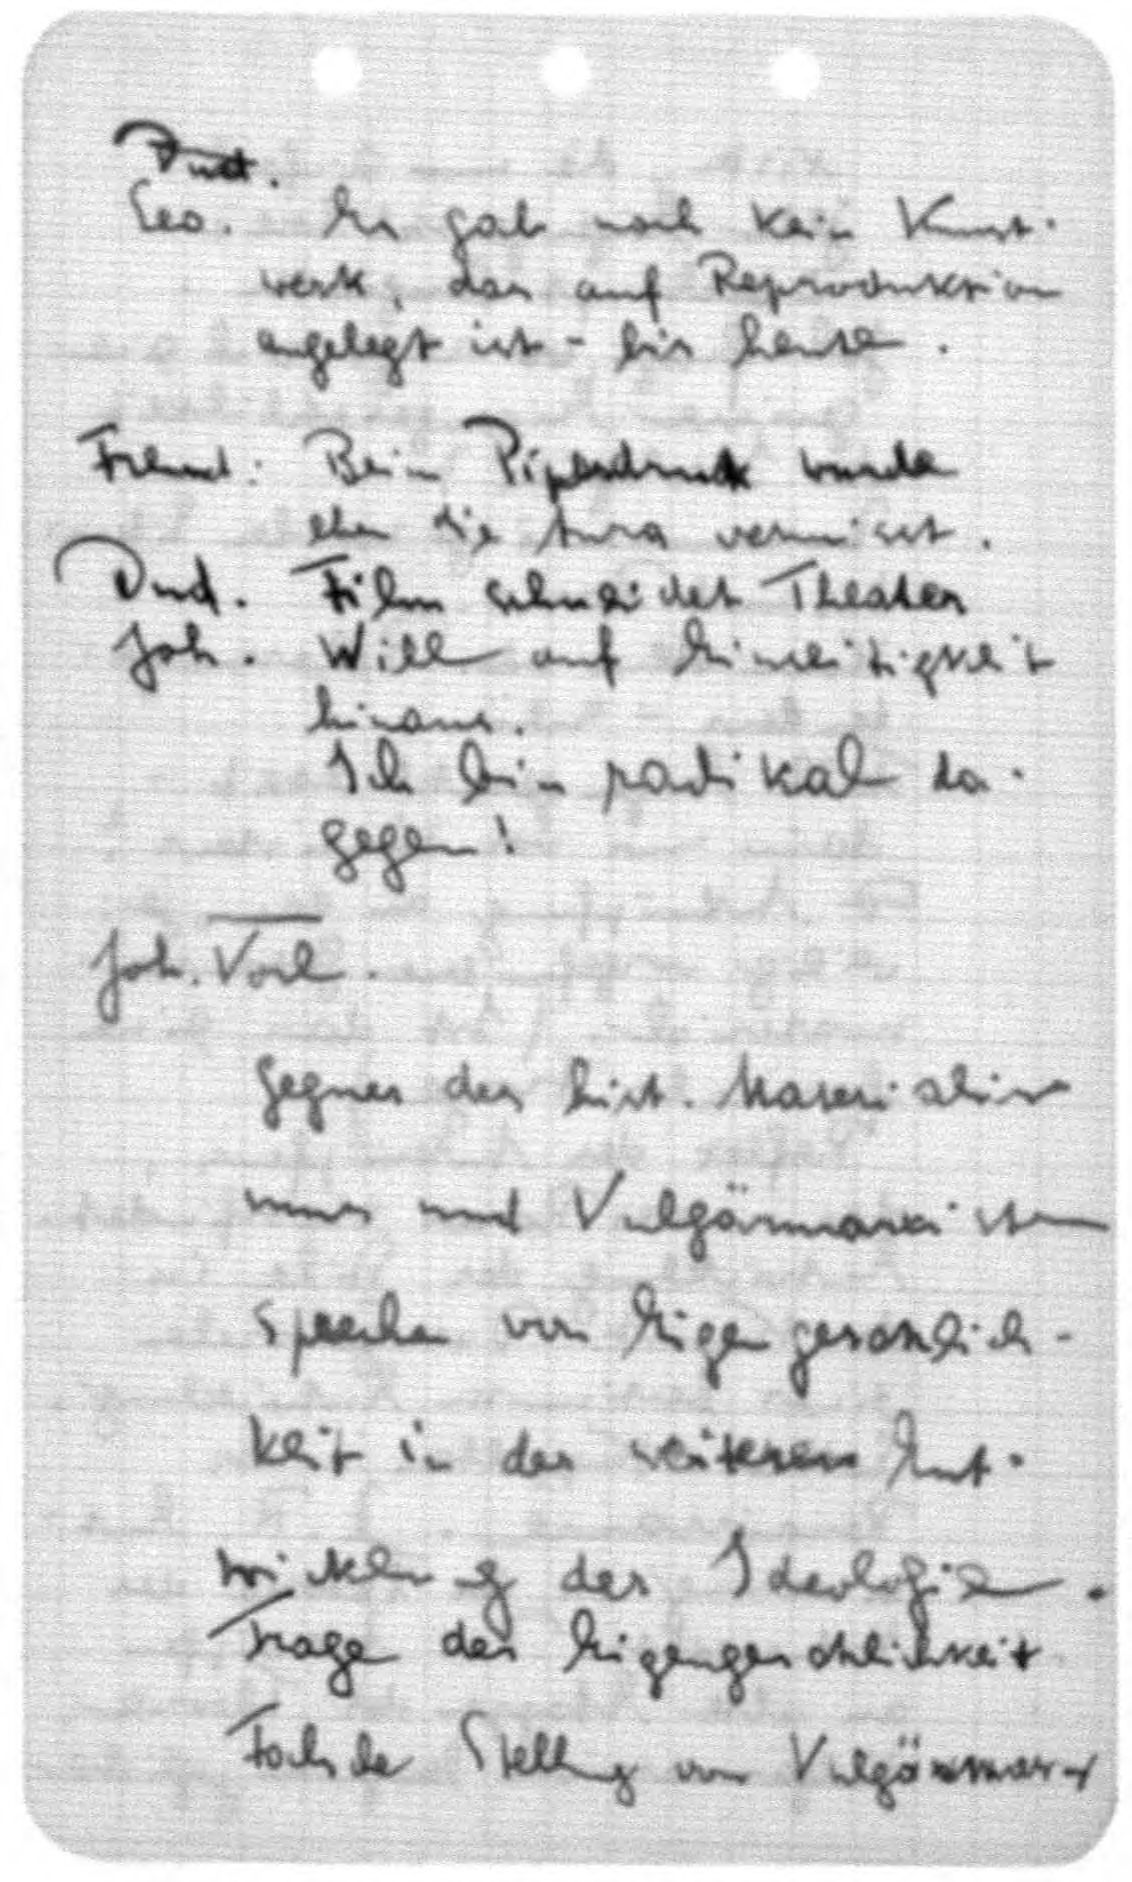 Dud.
Leo. Es gab noch kein Kunst-
werk, das auf Reproduktion
angelegt ist - bis heute.
Freund: Beim Piperdruck wurde
eben die Aura vermisst.
Dud. Film schneidet Theater
Joh. Will auf Einseitigkeit
hinaus.
Ich bin radikal da-
gegen!
Joh. Vorl.
Gegner des hist. Materialis
mus und Vulgärmarxisten
sprechen von Eigengesetzlich-
keit in der weiteren Ent-
wicklung der Ideologien.
Frage der Eigengesetzlichkeit
Falsche Stellung von Vulgärmarx